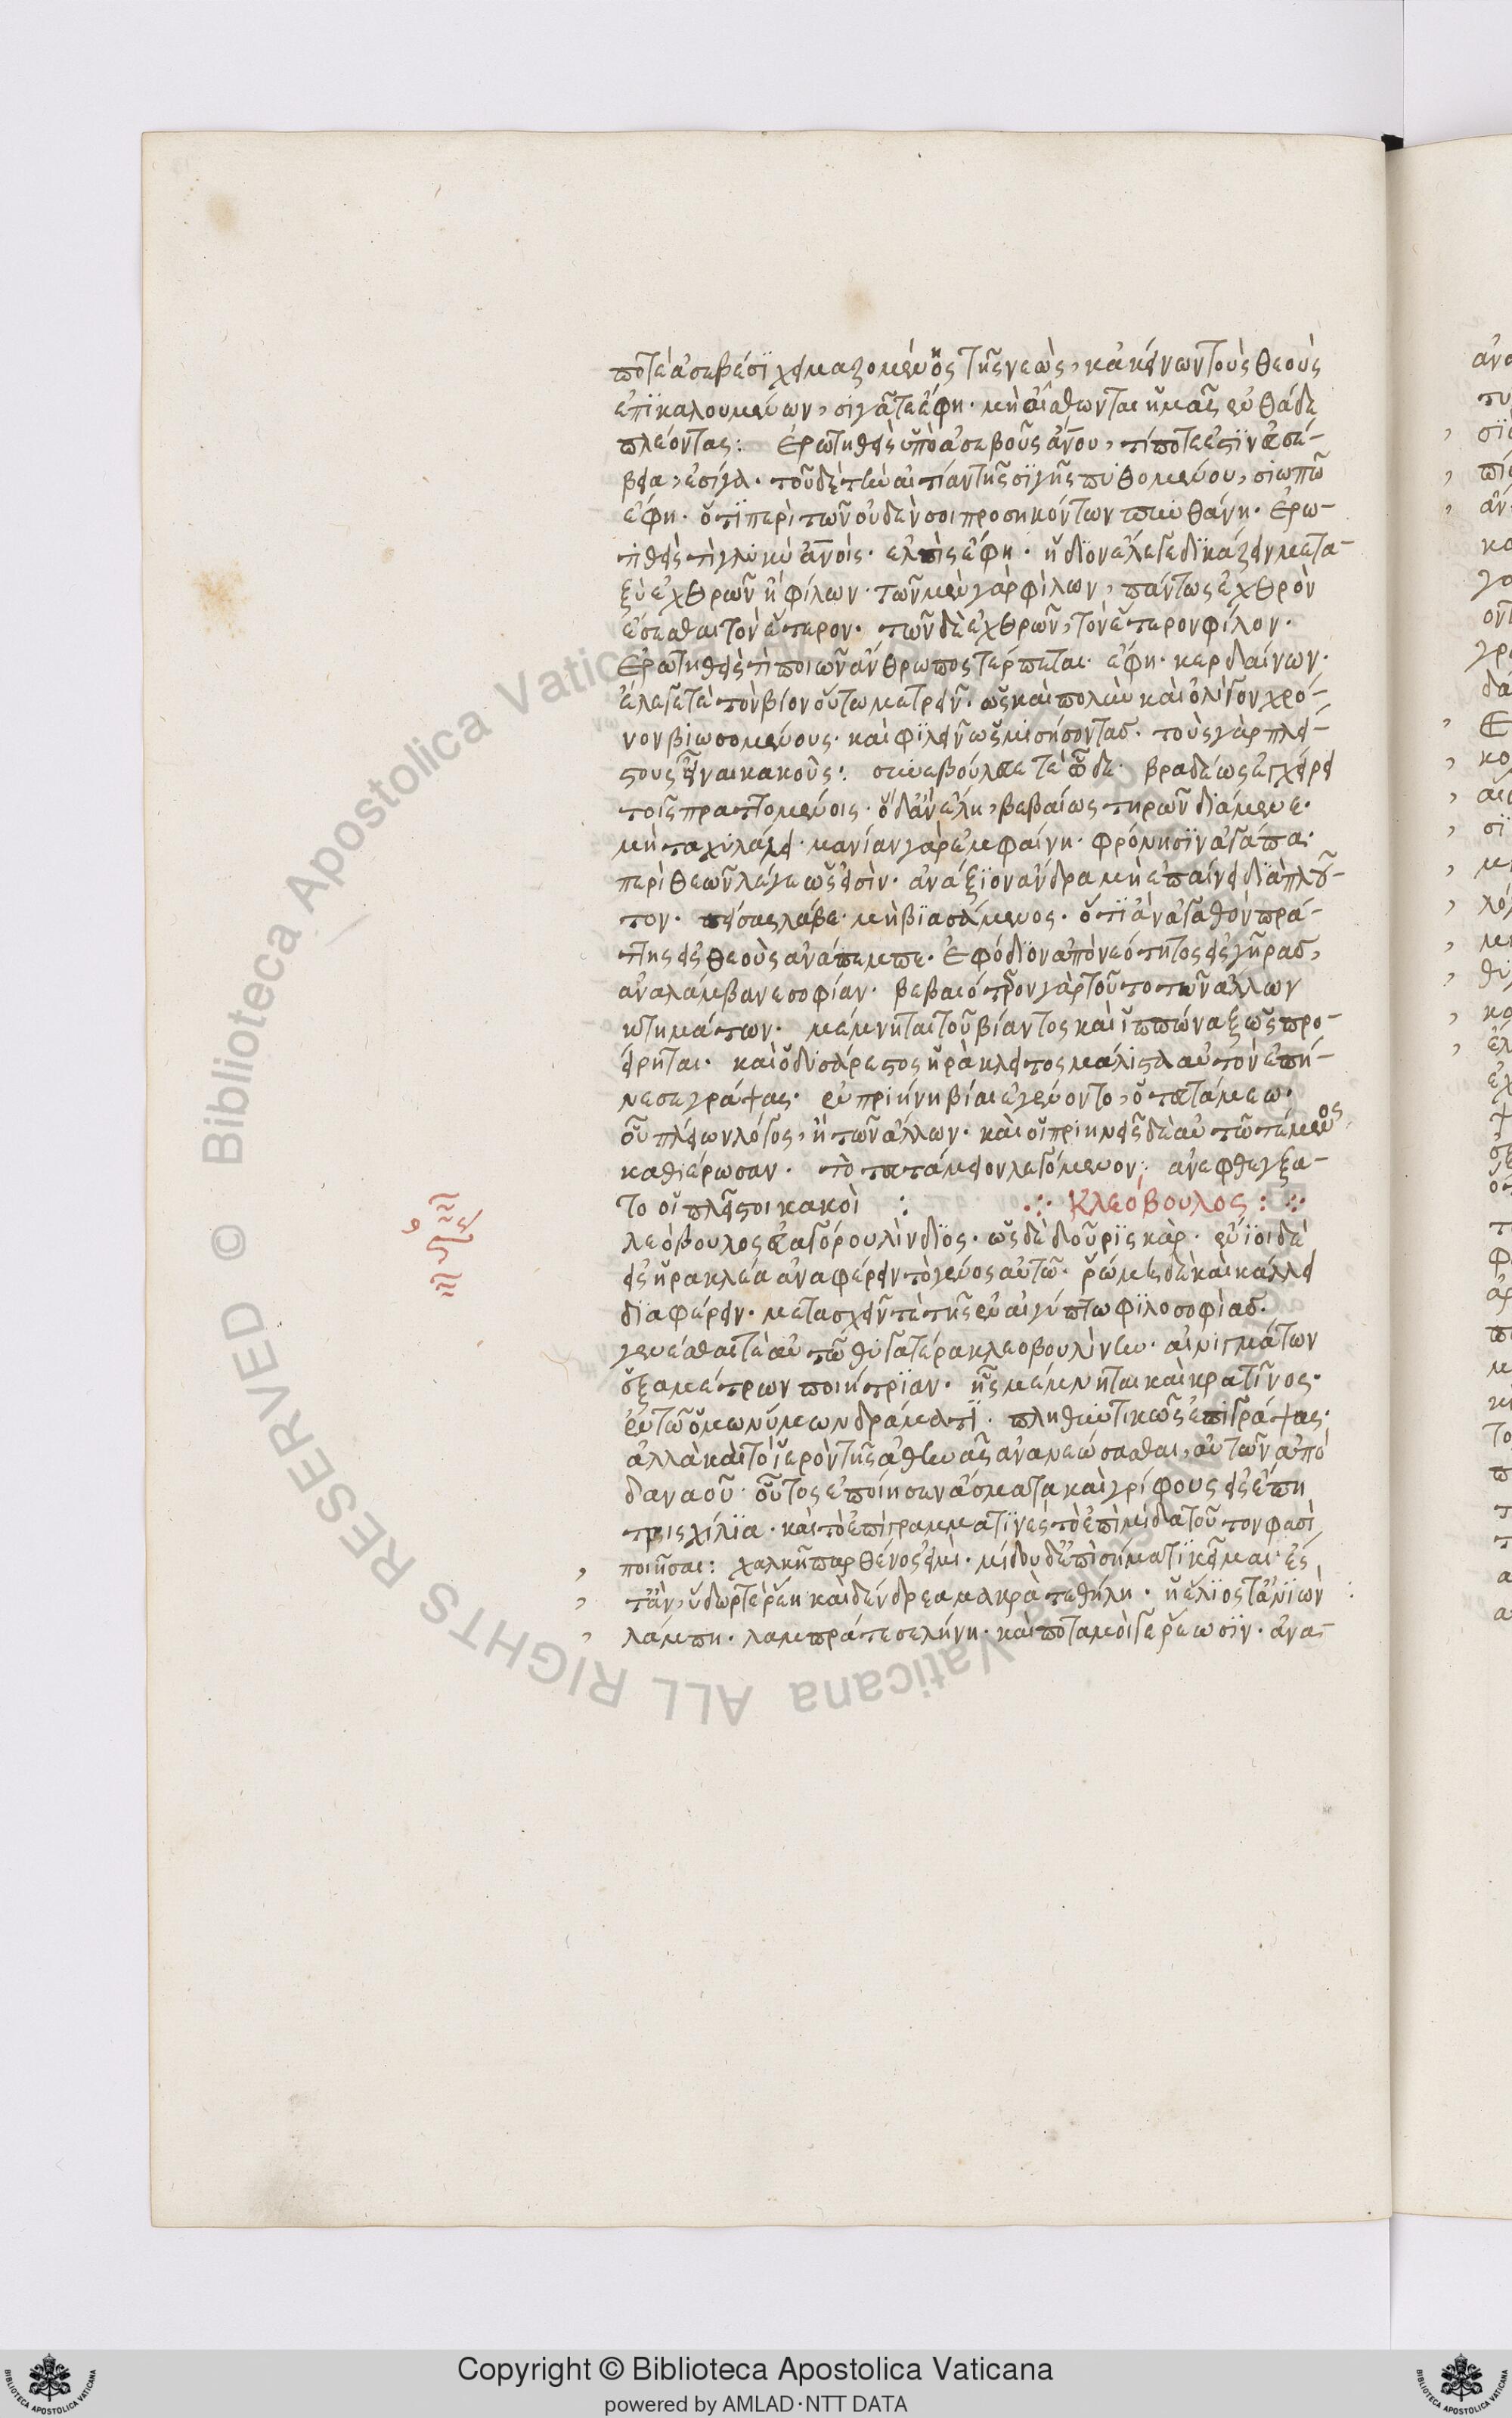 ποτὲ ἀσεβέσι χειμαζομένης τῆς νεὼς, κἀκείνων τοὺς θεοὺς
ἐπικαλουμένων, σιγᾶτε ἔφη· μὴ αἴσθωνται ἡμᾶς ἐνθάδε
πλέοντας: Ἐρωτηθεὶς ὑπὸ ἀσεβοῦς ἀν̅ου, τί ποτέ ἐστιν εὐσέ-
βεια, ἐσίγα. τοῦ δὲ τὴν αἰτίαν τῆς σιγῆς πυθομένου, σιωπῶ
ἔφη. ὅτι περὶ τῶν οὐδέν σοι προσηκόντων πυνθάνη. Ἐρω-
τηθεὶς τί γλυκὺ ἀν̅οις· ἐλπὶς ἔφη. ἥδιον ἔλεγε δικάζειν μετα-
ξὺ ἐχθρῶν ἢ φίλων. τῶν μὲν γὰρ φίλων, πάντως ἐχθρὸν
ἔσεσθαι τὸν ἕτερον. τῶν δὲ ἐχθρῶν, τὸν ἕτερον φίλον.
Ἐρωτηθεὶς τί ποιῶν ἄνθρωπος τέρπεται· ἔφη· κερδαίνων.
ἔλεγέ τε τὸν βίον οὕτω μετρεῖν· ὡς καὶ πολὺν καὶ ὀλίγον χρό-
νον βιωσομένους. καὶ φιλεῖν ὡς μισήσοντας. τοὺς γὰρ πλεί-
στους εἶναι κακούς: συνεβούλευέ τε ὧδε· βραδέως ἐγχείρει
τοῖς πραττομένοις· ὃ δ' ἂν ἕλῃ, βεβαίως τηρῶν διάμενε.
μὴ ταχὺ λάλει· μανίαν γὰρ ἐμφαίνη. φρόνησιν ἀγάπα.
περὶ θεῶν λέγε ὡς εἰσὶν. ἀνάξιον ἄνδρα μὴ ἐπαίνει διὰ πλοῦ-
τον. πείσας λάβε· μὴ βιασάμενος. ὅτι ἂν ἀγαθὸν πρά-
ττῃς εἰς θεοὺς ἀνάπεμπε. ἐφόδιον ἀπὸ νεότητος εἰς γῆρας,
ἀναλάμβανε σοφίαν. βεβαιότερον γὰρ τοῦτο τῶν ἄλλων
κτημάτων. μέμνηται τοῦ βίαντος καὶ ἱππώναξ ὡς προ-
είρηται. καὶ ὁ δυσάρεστος ἡράκλειτος μάλιστα αὐτὸν ἐπῄ-
νεσε γράψας. ἐν πριήνη βίας ἐγένοντο, ὁ τευτάμεω.
οὗ πλείων λόγος, ἢ τῶν ἄλλων. καὶ οἱ πριηνεῖς δὲ αὐτῶ τέμενος
καθιέρωσαν. τὸ τευτάμειον λεγόμενον: ἀνεφθέγξα-
το οἱ πλεῖστοι κακοὶ : .:· Κλεόβουλος : ·:·
λεόβουλος εὐαγόρου λίνδιος. ὡς δὲ δοῦρις κὰρ. ἔνιοι δὲ
εἰς ἡρακλέα ἀναφέρειν τὸ γένος αὐτῶ. ῥώμη δὲ καὶ κάλλει
διαφέρειν. μετασχεῖν τὲ τῆς ἐν αἰγύπτω φιλοσοφίας.
γενέσθαι τε αὐτῶ θυγατέρα κλεοβουλίνην. αἰνιγμάτων
ἑξαμέτρων ποιήτριαν. ἧς μέμνηται καὶ κρατῖνος.
ἐν τῶ ὁμωνύμω δράματι. πληθυντικῶς ἐπιγράψας.
ἀλλὰ καὶ τὸ ἱερὸν τῆς ἀθηνᾶς ἀνανεώσασθαι, αὐτῶν ἀπὸ
δαναοῦ. οὗτος ἐποίησεν ᾄσματα καὶ γρίφους εἰς ἔπη
τρισχίλια. καὶ τὸ ἐπίγραμμα τινὲς τὸ ἐπὶ μίδα τοῦτον φασὶ
ποιῆσαι: χαλκῆ παρθένος εἰμὶ. μίδου δ' ἐπὶ σήματι κεῖμαι. ἔς
τ' ἂν, ὕδωρ τε ῥέῃ καὶ δένδρεα μακρὰ τεθήλη. ἠέλιος τ' ἀνιὼν
λάμπη. λαμπρά τε σελήνη. καὶ ποταμοί γε ῥέωσιν. ἀνα-
Copyright © Biblioteca Apostolica Vaticana
powered by AMLAD·NTT DATA